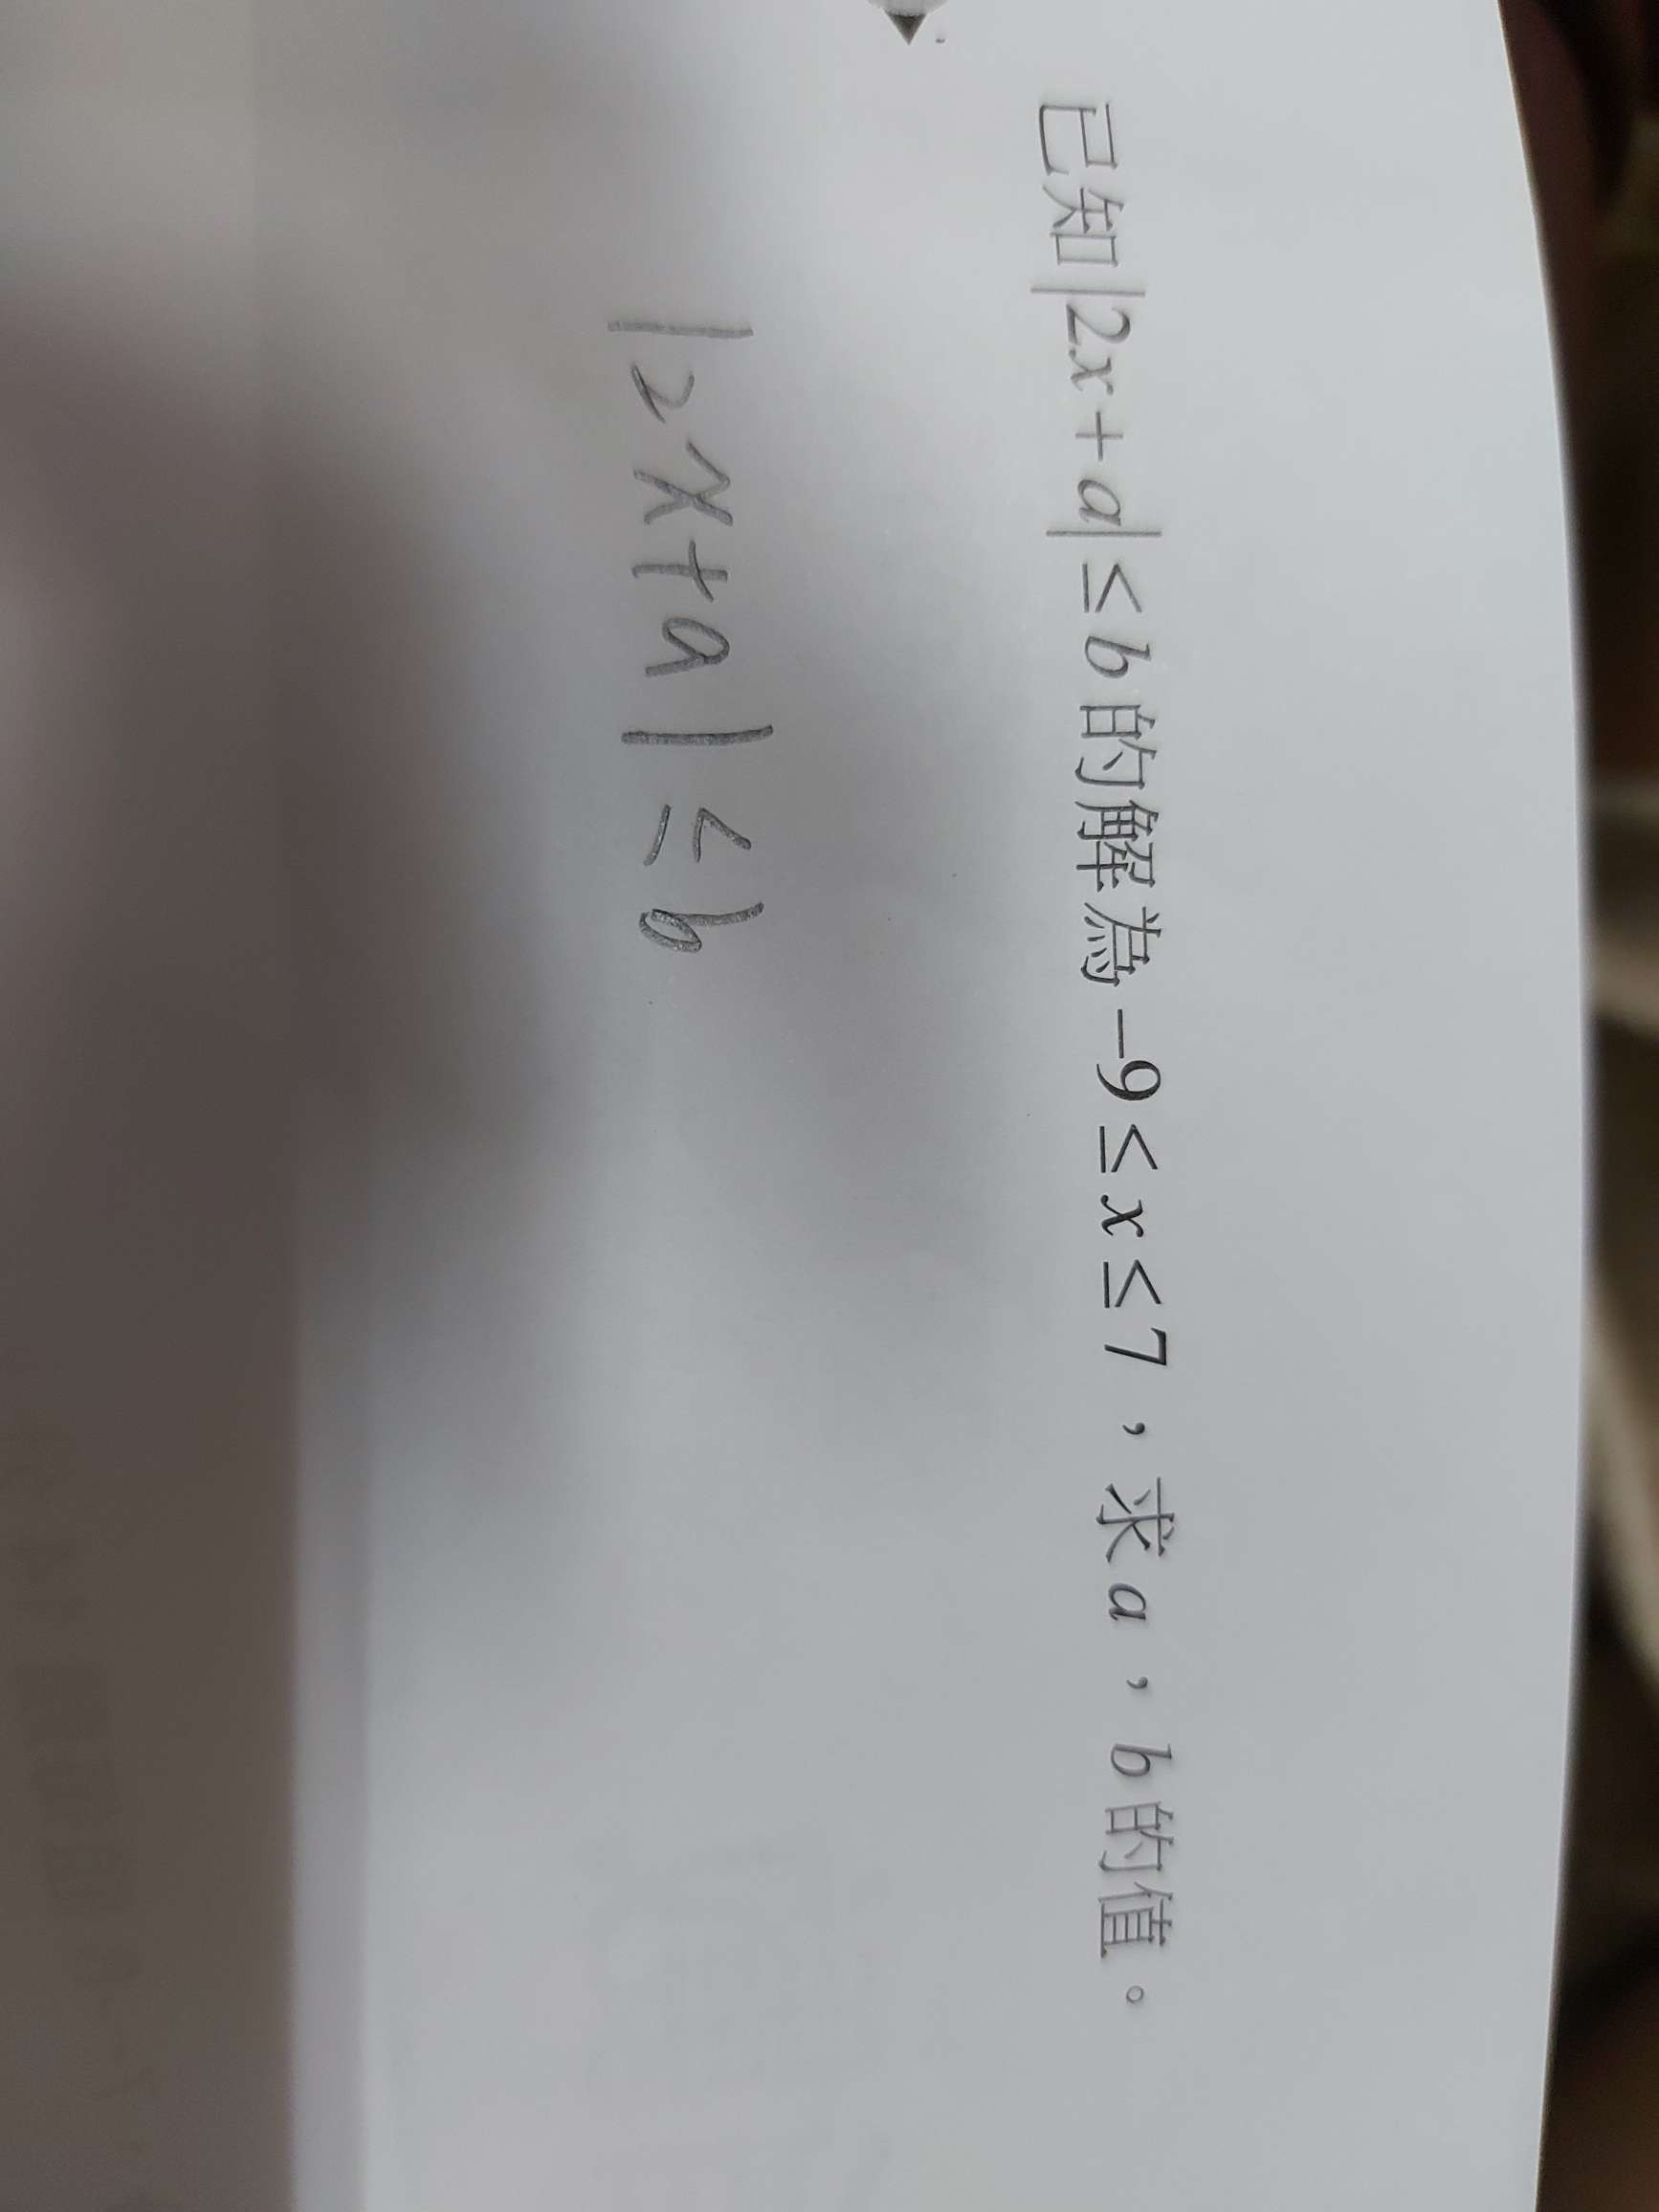 已知|2x+a|≤b的解為-9≤x≤7，求a，b的值。
|2x+a|≤b